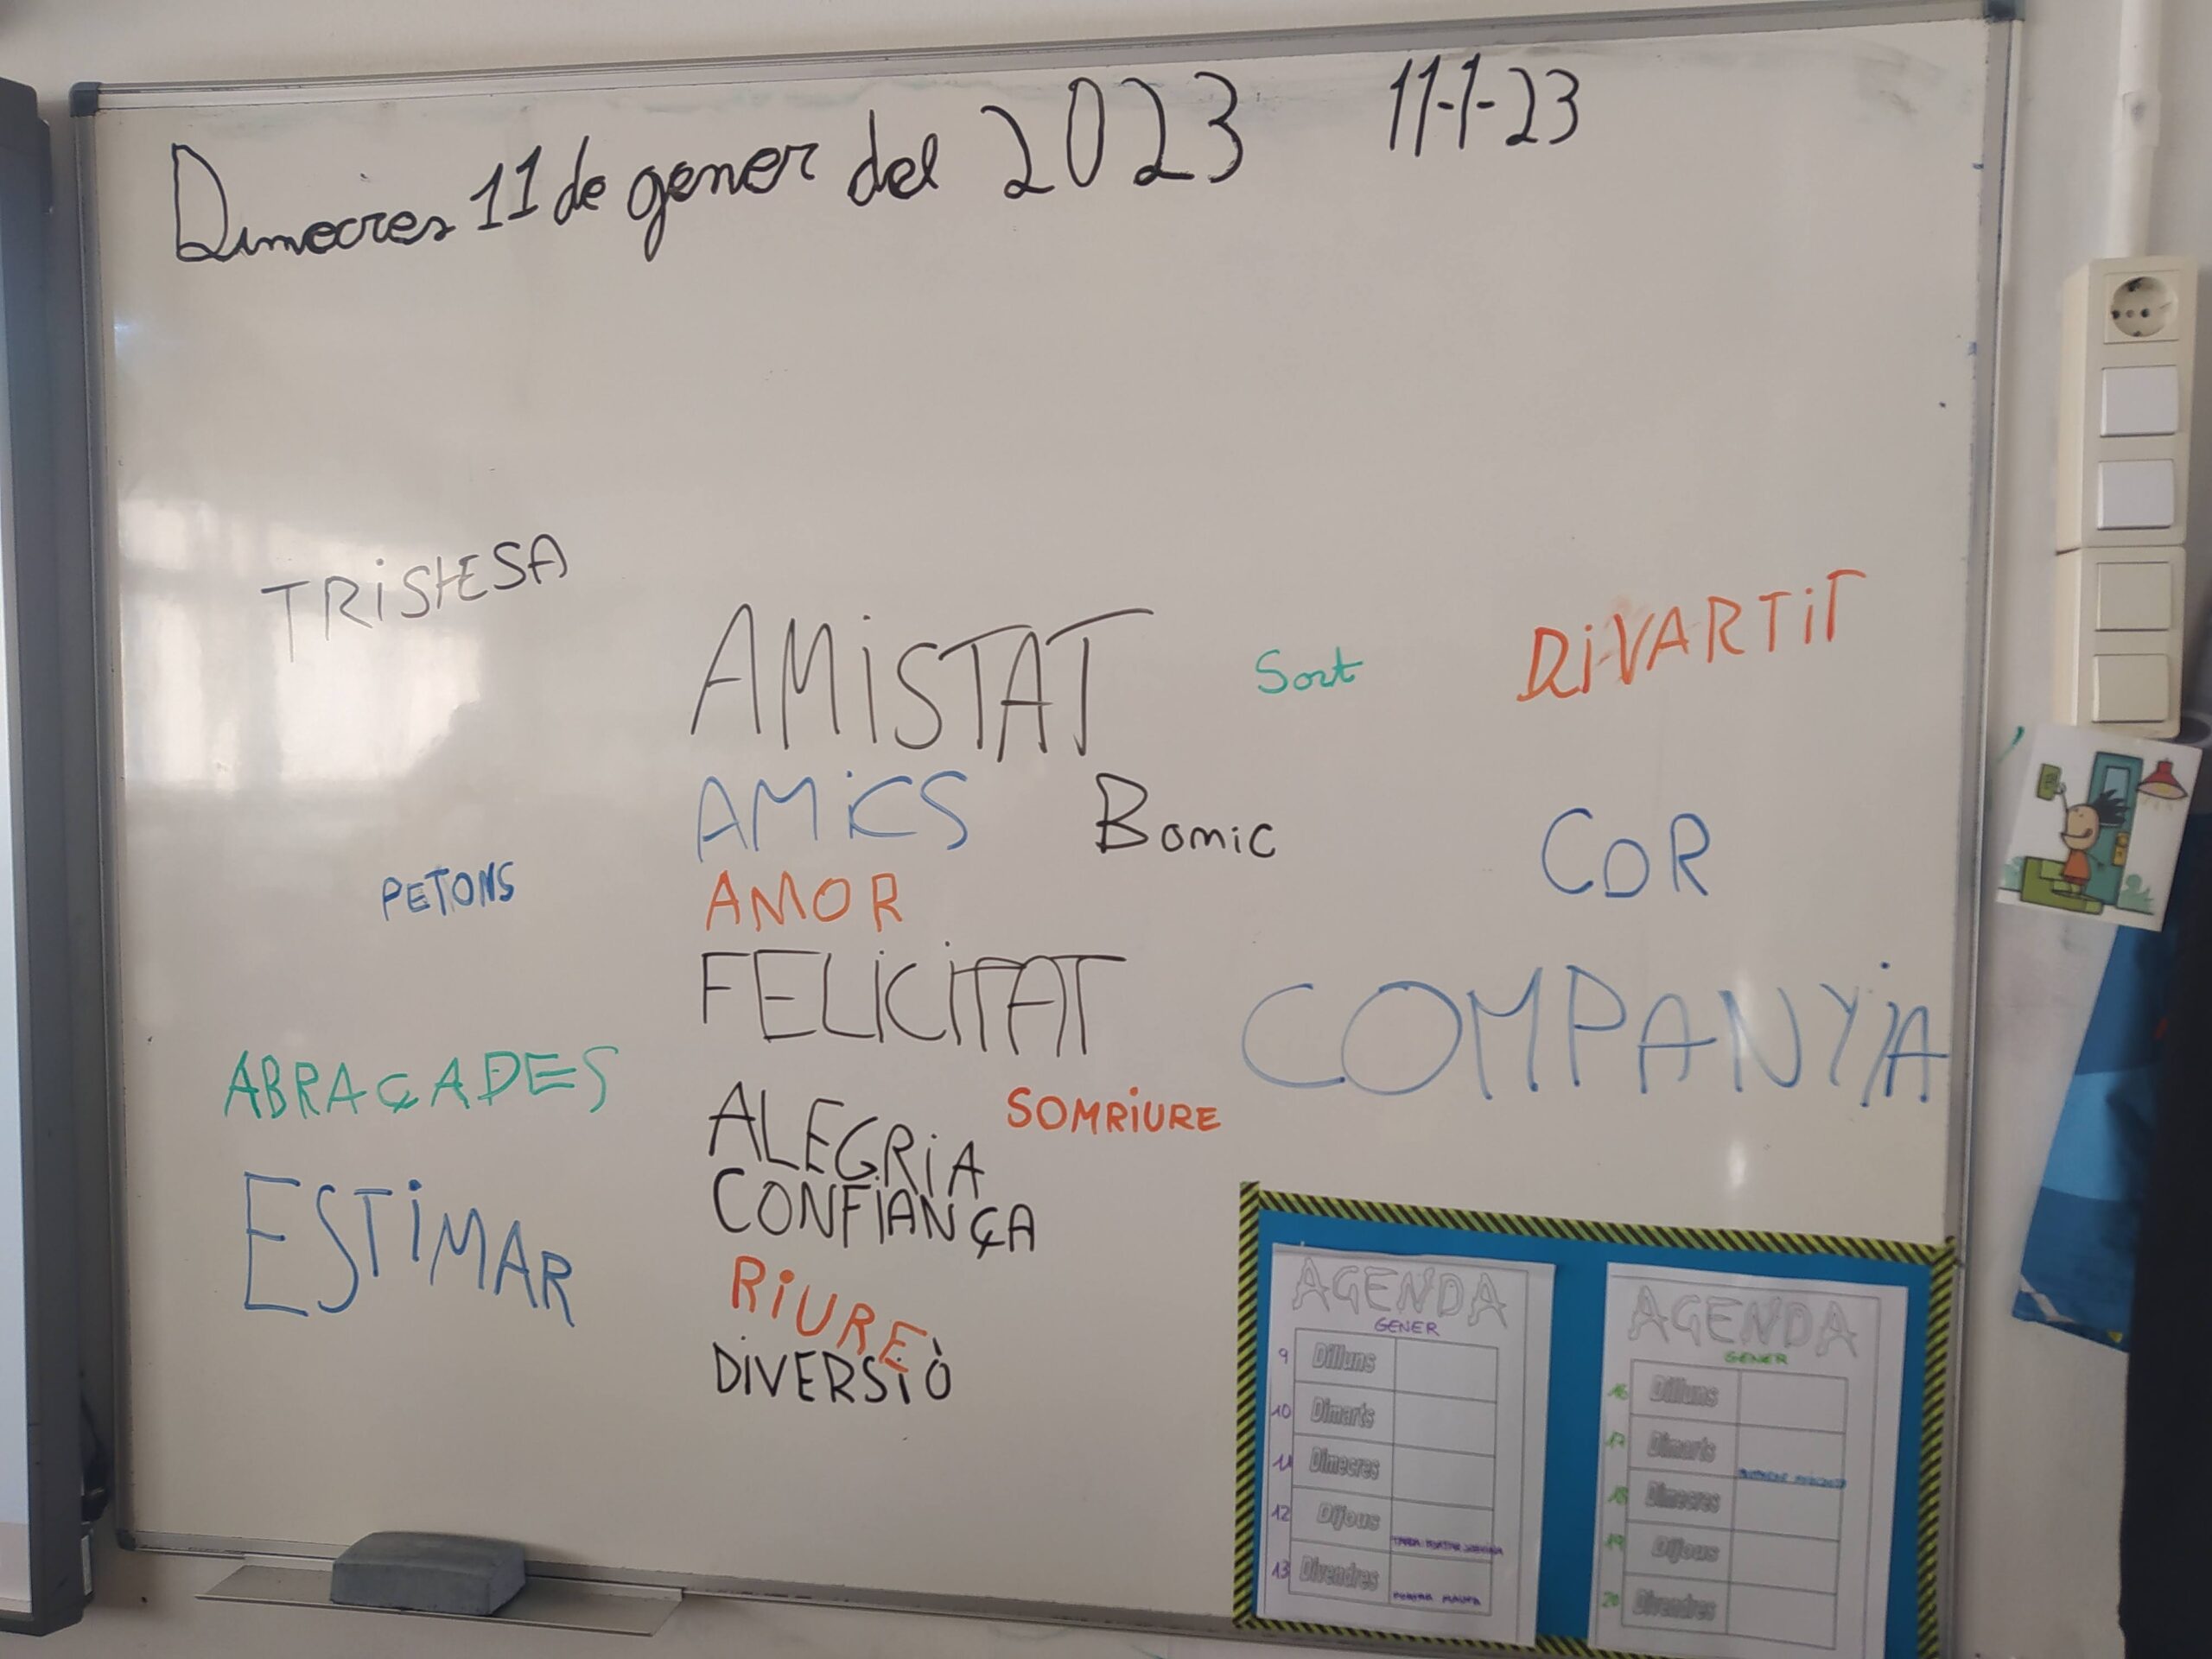 Dimecres 11 de gener del 2023 11-1-23
TRISTESA
AMiSTAT
Sort
DiVARTiT
AMiCS
Bomic
COR
PETONS
AMOR
FELiCiTAT
COMPANYiA
ABRAÇADES
ALEGRiA
SOMRiURE
CONFiANÇA
ESTiMAR
RiURE
DiVERSiÒ
AGENDA
GENER
9 Dilluns
10 Dimarts
11 Dimecres
12 Dijous
13 Divendres
AGENDA
GENER
16 Dilluns
17 Dimarts
18 Dimecres
19 Dijous
20 Divendres